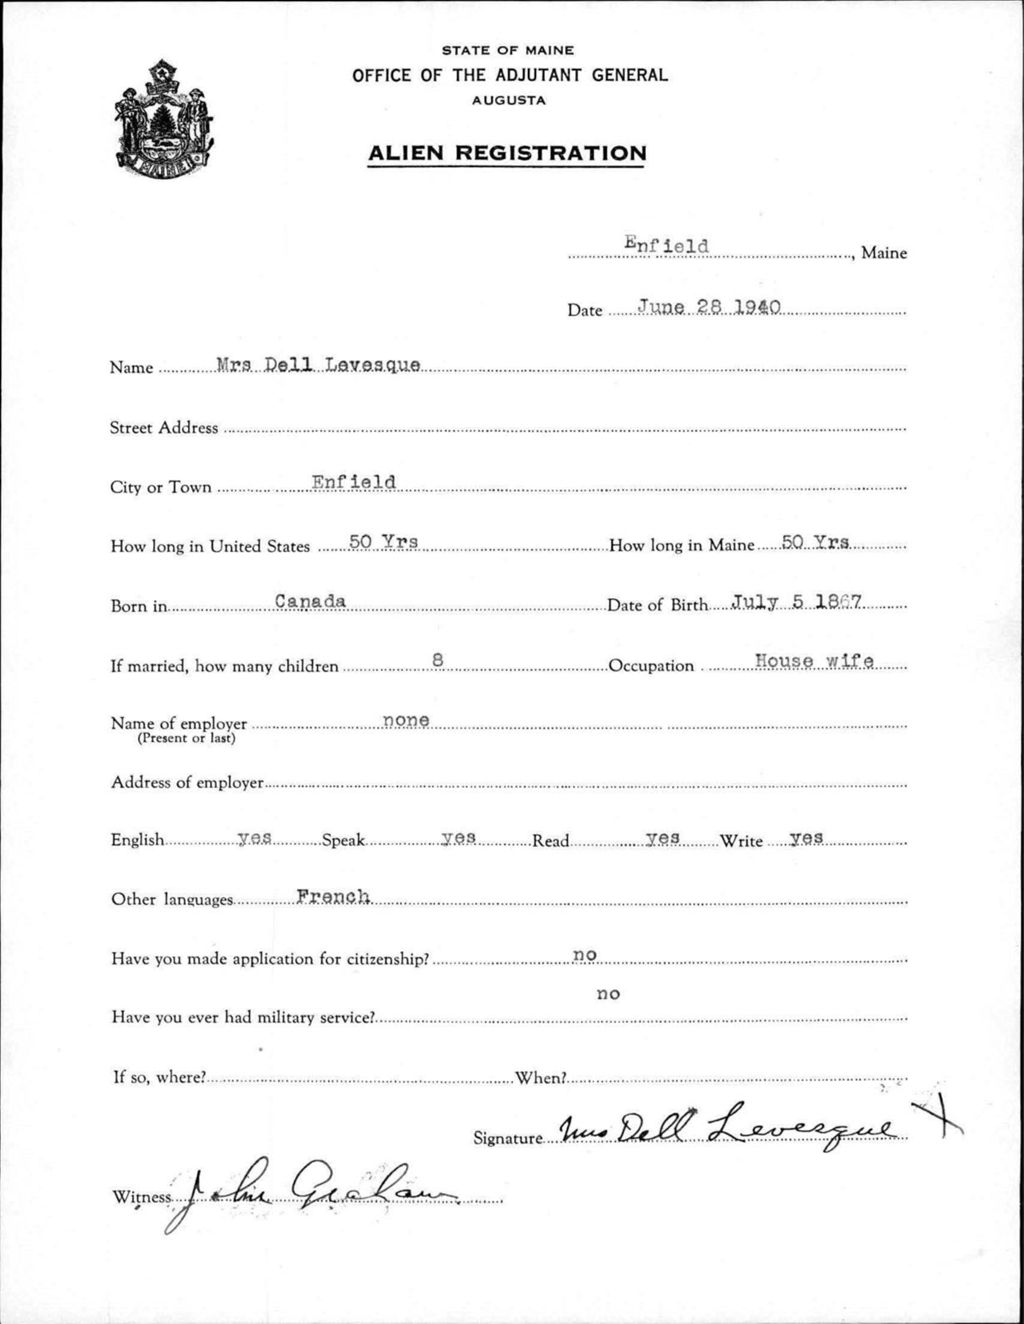 STATE OF MAINE
OFFICE OF THE ADJUTANT GENERAL
AUGUSTA
ALIEN REGISTRATION
Enfield, Maine
Date June 28 1940
Name Mrs Dell Levesque
Street Address
City or Town Enfield
How long in United States 50 Yrs How long in Maine 50 Yrs
Born in Canada Date of Birth July 5 1867
If married, how many children 8 Occupation House wife
Name of employer none
(Present or last)
Address of employer
English yes Speak yes Read yes Write yes
Other languages French
Have you made application for citizenship? no
no
Have you ever had military service?
If so, where? When?
Signature Mrs Dell Levesque X
Witness John Graham